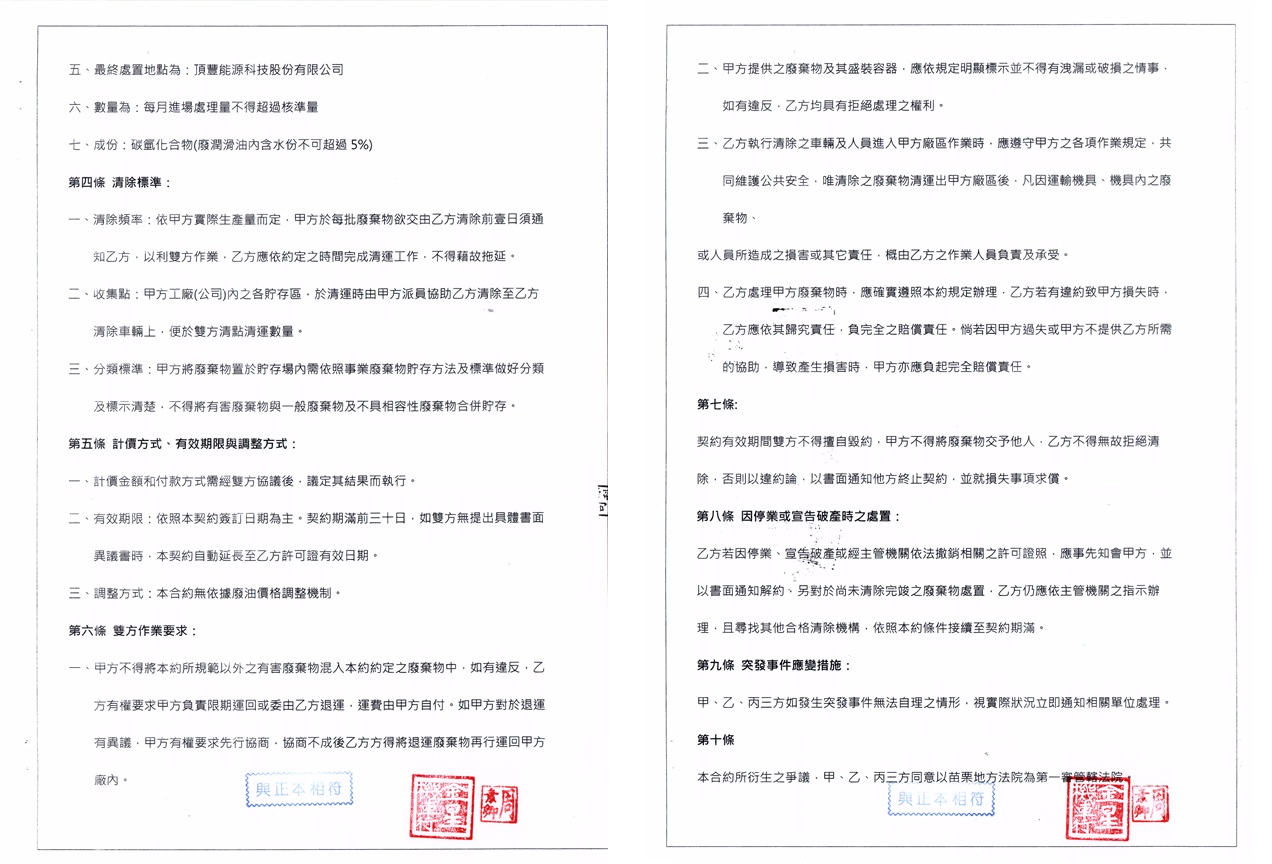 五、最終處置地點為：頂豐能源科技股份有限公司
六、數量為：每月進場處理量不得超過核準量
七、成份：碳氫化合物(廢潤滑油內含水份不可超過 5%)
第四條 清除標準：
一、清除頻率：依甲方實際生產量而定，甲方於每批廢棄物欲交由乙方清除前壹日須通
知乙方，以利雙方作業，乙方應依約定之時間完成清運工作，不得藉故拖延。
二、收集點：甲方工廠(公司)內之各貯存區，於清運時由甲方派員協助乙方清除至乙方
清除車輛上，便於雙方清點清運數量。
三、分類標準：甲方將廢棄物置於貯存場內需依照事業廢棄物貯存方法及標準做好分類
及標示清楚，不得將有害廢棄物與一般廢棄物及不具相容性廢棄物合併貯存。
第五條 計價方式、有效期限與調整方式：
一、計價金額和付款方式需經雙方協議後，議定其結果而執行。
二、有效期限：依照本契約簽訂日期為主。契約期滿前三十日，如雙方無提出具體書面
異議書時，本契約自動延長至乙方許可證有效日期。
三、調整方式：本合約無依據廢油價格調整機制。
第六條 雙方作業要求：
一、甲方不得將本約所規範以外之有害廢棄物混入本約約定之廢棄物中，如有違反，乙
方有權要求甲方負責限期運回或委由乙方退運，運費由甲方自付。如甲方對於退運
有異議，甲方有權要求先行協商，協商不成後乙方方得將退運廢棄物再行運回甲方
廠內。
與正本相符
二、甲方提供之廢棄物及其盛裝容器，應依規定明顯標示並不得有洩漏或破損之情事，
如有違反，乙方均具有拒絕處理之權利。
三、乙方執行清除之車輛及人員進入甲方廠區作業時，應遵守甲方之各項作業規定，共
同維護公共安全，唯清除之廢棄物清運出甲方廠區後，凡因運輸機具、機具內之廢
棄物、
或人員所造成之損害或其它責任，概由乙方之作業人員負責及承受。
四、乙方處理甲方廢棄物時，應確實遵照本約規定辦理，乙方若有違約致甲方損失時，
乙方應依其歸究責任，負完全之賠償責任。惝若因甲方過失或甲方不提供乙方所需
的協助，導致產生損害時，甲方亦應負起完全賠償責任。
第七條:
契約有效期間雙方不得擅自毀約，甲方不得將廢棄物交予他人，乙方不得無故拒絕清
除，否則以違約論，以書面通知他方終止契約，並就損失事項求償。
第八條 因停業或宣告破產時之處置：
乙方若因停業、宣告破產或經主管機關依法撤銷相關之許可證照，應事先知會甲方，並
以書面通知解約、另對於尚未清除完竣之廢棄物處置，乙方仍應依主管機關之指示辦
理，且尋找其他合格清除機構，依照本約條件接續至契約期滿。
第九條 突發事件應變措施：
甲、乙、丙三方如發生突發事件無法自理之情形，視實際狀況立即通知相關單位處理。
第十條
本合約所衍生之爭議，甲、乙、丙三方同意以苗栗地方法院為第一審管轄法院。
與正本相符